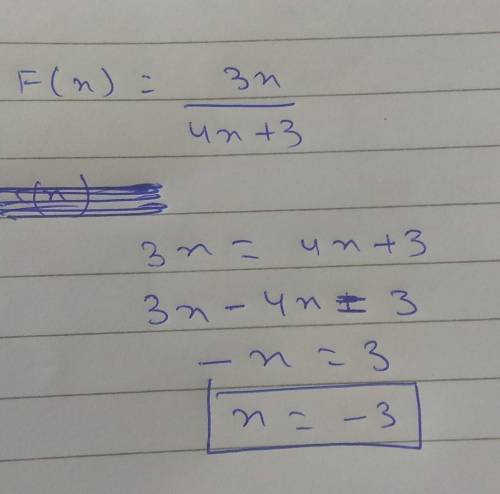 F(x) = 3x / 4x+3
(x)
3x = 4x+3
3x - 4x = 3
- x = 3
x = -3